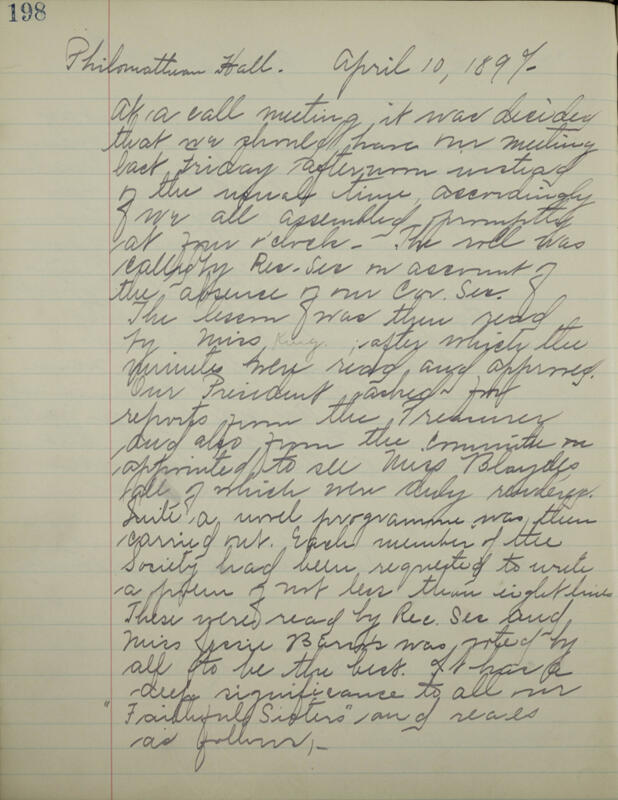 198
Philomathean Hall. April 10, 1897
At a call meeting it was decided
that we should have our meeting
last Friday afternoon instead
of the usual time, accordingly
we all assembled promptly
at four o'clock - The roll was
called by Rec. Sec on account of
the absence of our Cor. Sec.
The lesson was then read
by Miss King, after which the
minutes were read and approved.
Our President asked for
reports from the Treasurer
and also from the Committee on
appointed to see Miss Blaydes
all of which were duly rendered.
Quite a novel programme was then
carried out. Each member of the
Society had been requested to write
a poem of not less than eight lines
These were read by Rec. Sec and
Miss Jessie was voted by
all to be the best. It has a
deep significance to all our
"Faithful Sisters" and reads
as follows,-